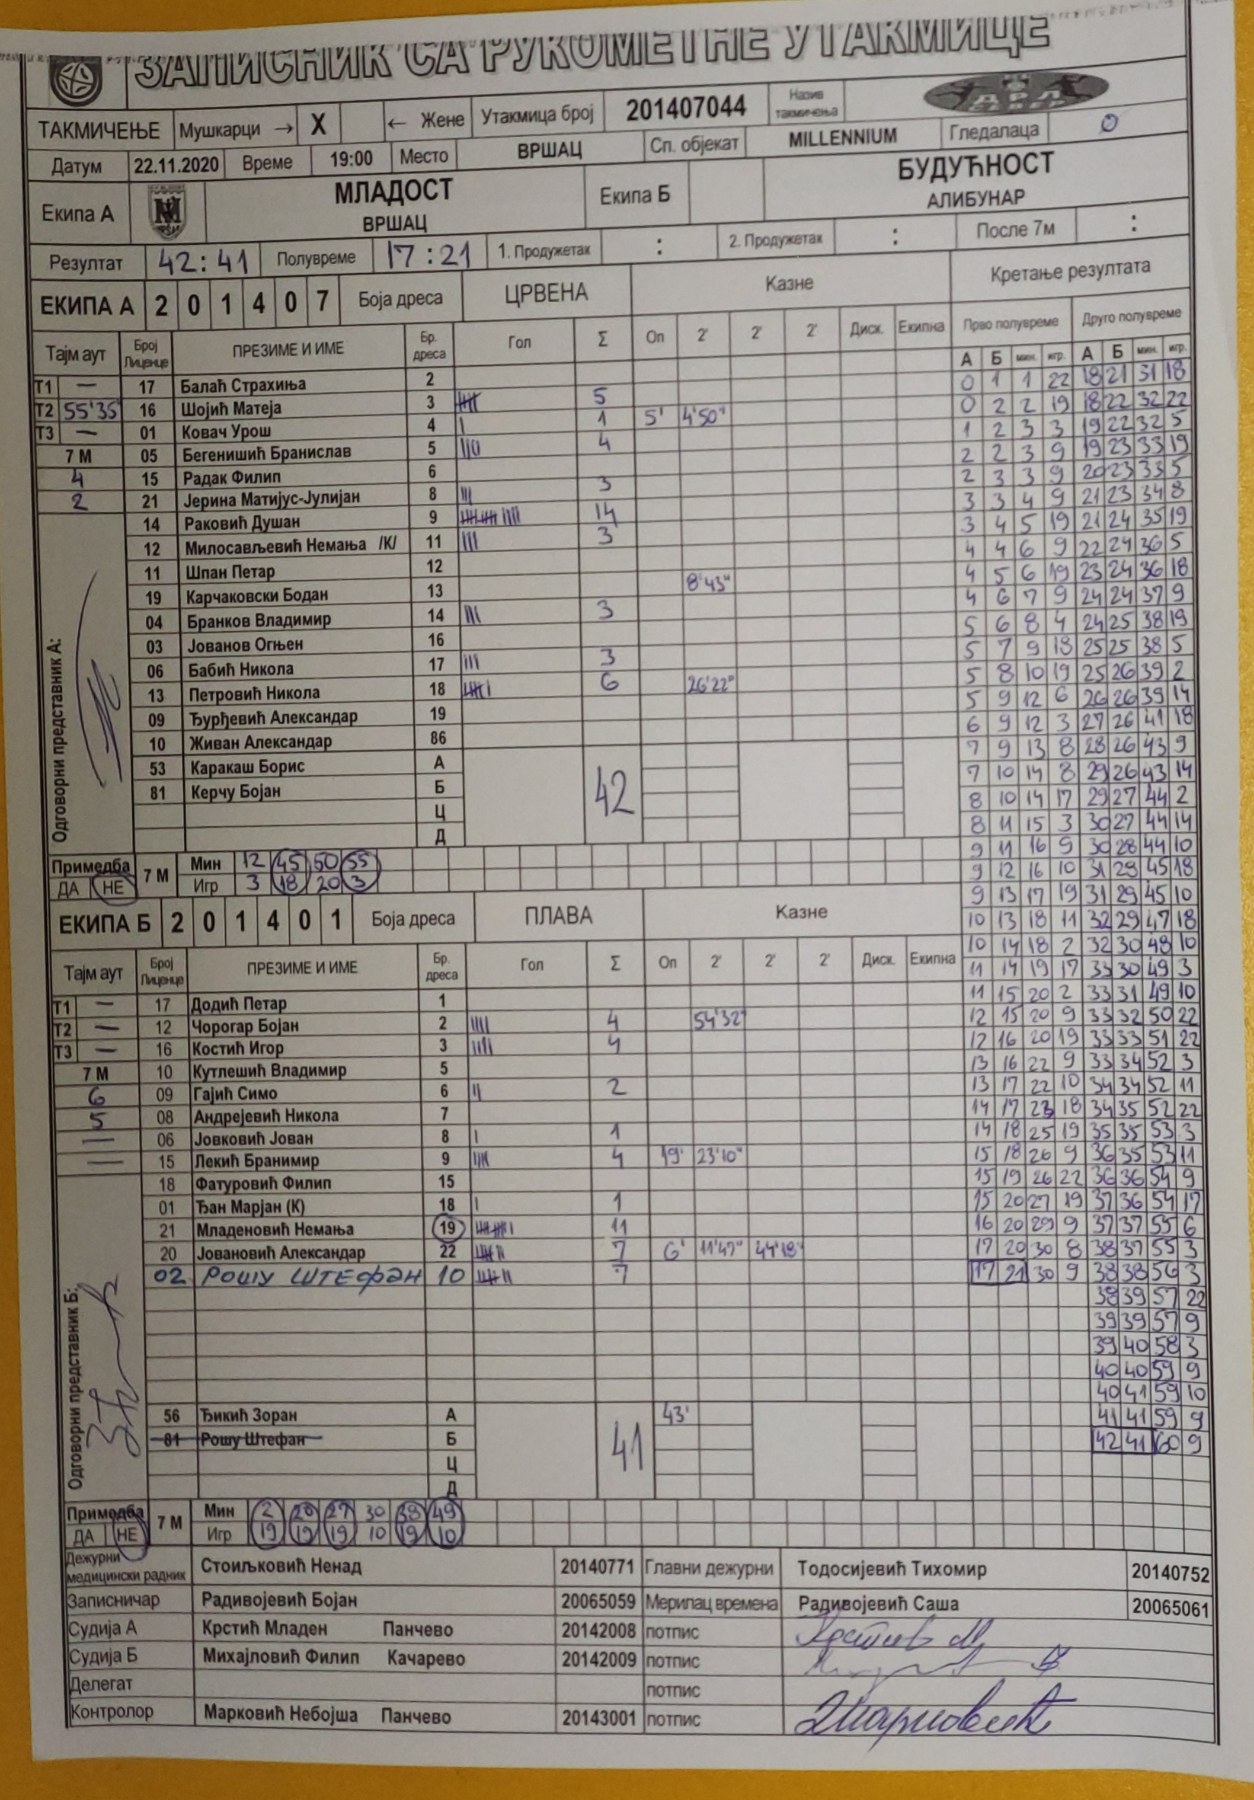 ЗАПИСНИК СА РУКОМЕТНЕ УТАКМИЦЕ
ТАКМИЧЕЊЕ Мушкарци → X ← Жене Утакмица број 201407044 Назив такмичења
Датум 22.11.2020 Време 19:00 Место ВРШАЦ Сп. објекат MILLENNIUM Гледалаца 0
Екипа А МЛАДОСТ ВРШАЦ Екипа Б БУДУЋНОСТ АЛИБУНАР
Резултат 42:41 Полувреме 17:21 1. Продужетак : 2. Продужетак : После 7м :
ЕКИПА А 2 0 1 4 0 7 Боја дреса ЦРВЕНА Казне Кретање резултата
Тајм аут Број Лиценце ПРЕЗИМЕ И ИМЕ Бр. дреса Гол Σ Оп 2' 2' 2' Диск. Екипна Прво полувреме Друго полувреме
А Б мин. игр. А Б мин. игр.
Т1 — 17 Балаћ Страхиња 2
Т2 55'35 16 Шојић Матеја 3 5
Т3 — 01 Ковач Урош 4 1 5' 4'50"
7 М 05 Бегенишић Бранислав 5 4
4 15 Радак Филип 6
2 21 Јерина Матијус-Јулијан 8 3
14 Раковић Душан 9 14
12 Милосављевић Немања /К/ 11 3
11 Шпан Петар 12
19 Карчаковски Бодан 13 8'43"
04 Бранков Владимир 14 3
03 Јованов Огњен 16
06 Бабић Никола 17 3
13 Петровић Никола 18 6 26'22"
09 Ђурђевић Александар 19
10 Живан Александар 86
53 Каракаш Борис А
81 Керчу Бојан Б 42
Ц
Д
Одговорни представник А:
Примедба ДА НЕ 7 М Мин 12 45 50 55
Игр 3 18 20 3
ЕКИПА Б 2 0 1 4 0 1 Боја дреса ПЛАВА Казне
Тајм аут Број Лиценце ПРЕЗИМЕ И ИМЕ Бр. дреса Гол Σ Оп 2' 2' 2' Диск. Екипна
Т1 — 17 Додић Петар 1
Т2 — 12 Чорогар Бојан 2 4 54'32"
Т3 — 16 Костић Игор 3 4
7 М 10 Кутлешић Владимир 5
6 09 Гајић Симо 6 2
5 08 Андрејевић Никола 7
— 06 Јовковић Јован 8 1
— 15 Лекић Бранимир 9 4 19' 23'10"
18 Фатуровић Филип 15
01 Ђан Марјан (К) 18 1
21 Младеновић Немања 19 11
20 Јовановић Александар 22 7 6' 11'47" 44'18"
02 РОШУ ШТЕФАН 10 7
56 Ђикић Зоран А 43'
81 Рошу Штефан Б 41
Ц
Д
Одговорни представник Б:
Примедба ДА НЕ 7 М Мин 2 20 27 30 38 49
Игр 19 19 19 10 19 10
0 1 1 22 18 21 31 18
0 2 2 19 18 22 32 22
1 2 3 3 19 22 32 5
2 2 3 9 19 23 33 19
2 3 3 9 20 23 33 5
3 3 4 9 21 23 34 8
3 4 5 19 21 24 35 19
4 4 6 9 22 24 36 5
4 5 6 19 23 24 36 18
4 6 7 9 24 24 37 9
5 6 8 4 24 25 38 19
5 7 9 18 25 25 38 5
5 8 10 19 25 26 39 2
5 9 12 6 26 26 39 14
6 9 12 3 27 26 41 18
7 9 13 8 28 26 43 9
7 10 14 8 29 26 43 14
8 10 14 17 29 27 44 2
8 11 15 3 30 27 44 14
9 11 16 9 30 28 44 10
9 12 16 10 31 28 45 18
9 13 17 19 31 29 45 10
10 13 18 11 32 29 47 18
10 14 18 2 32 30 48 10
11 14 19 17 33 30 49 3
11 15 20 2 33 31 49 10
12 15 20 9 33 32 50 22
12 16 20 19 33 33 51 22
13 16 22 9 33 34 52 3
13 17 22 10 34 34 52 11
14 17 23 18 34 35 52 22
14 18 25 19 35 35 53 3
15 18 26 9 36 35 53 11
15 19 26 22 36 36 54 9
15 20 27 19 37 36 54 17
16 20 29 9 37 37 55 6
17 20 30 8 38 37 55 3
17 21 30 9 38 38 56 3
38 39 57 22
39 39 57 9
39 40 58 3
40 40 59 9
40 41 59 10
41 41 59 9
42 41 60 9
Дежурни медицински радник Стоиљковић Ненад 20140771 Главни дежурни Тодосијевић Тихомир 20140752
Записничар Радивојевић Бојан 20065059 Мерилац времена Радивојевић Саша 20065061
Судија А Крстић Младен Панчево 20142008 потпис
Судија Б Михајловић Филип Качарево 20142009 потпис
Делегат потпис
Контролор Марковић Небојша Панчево 20143001 потпис